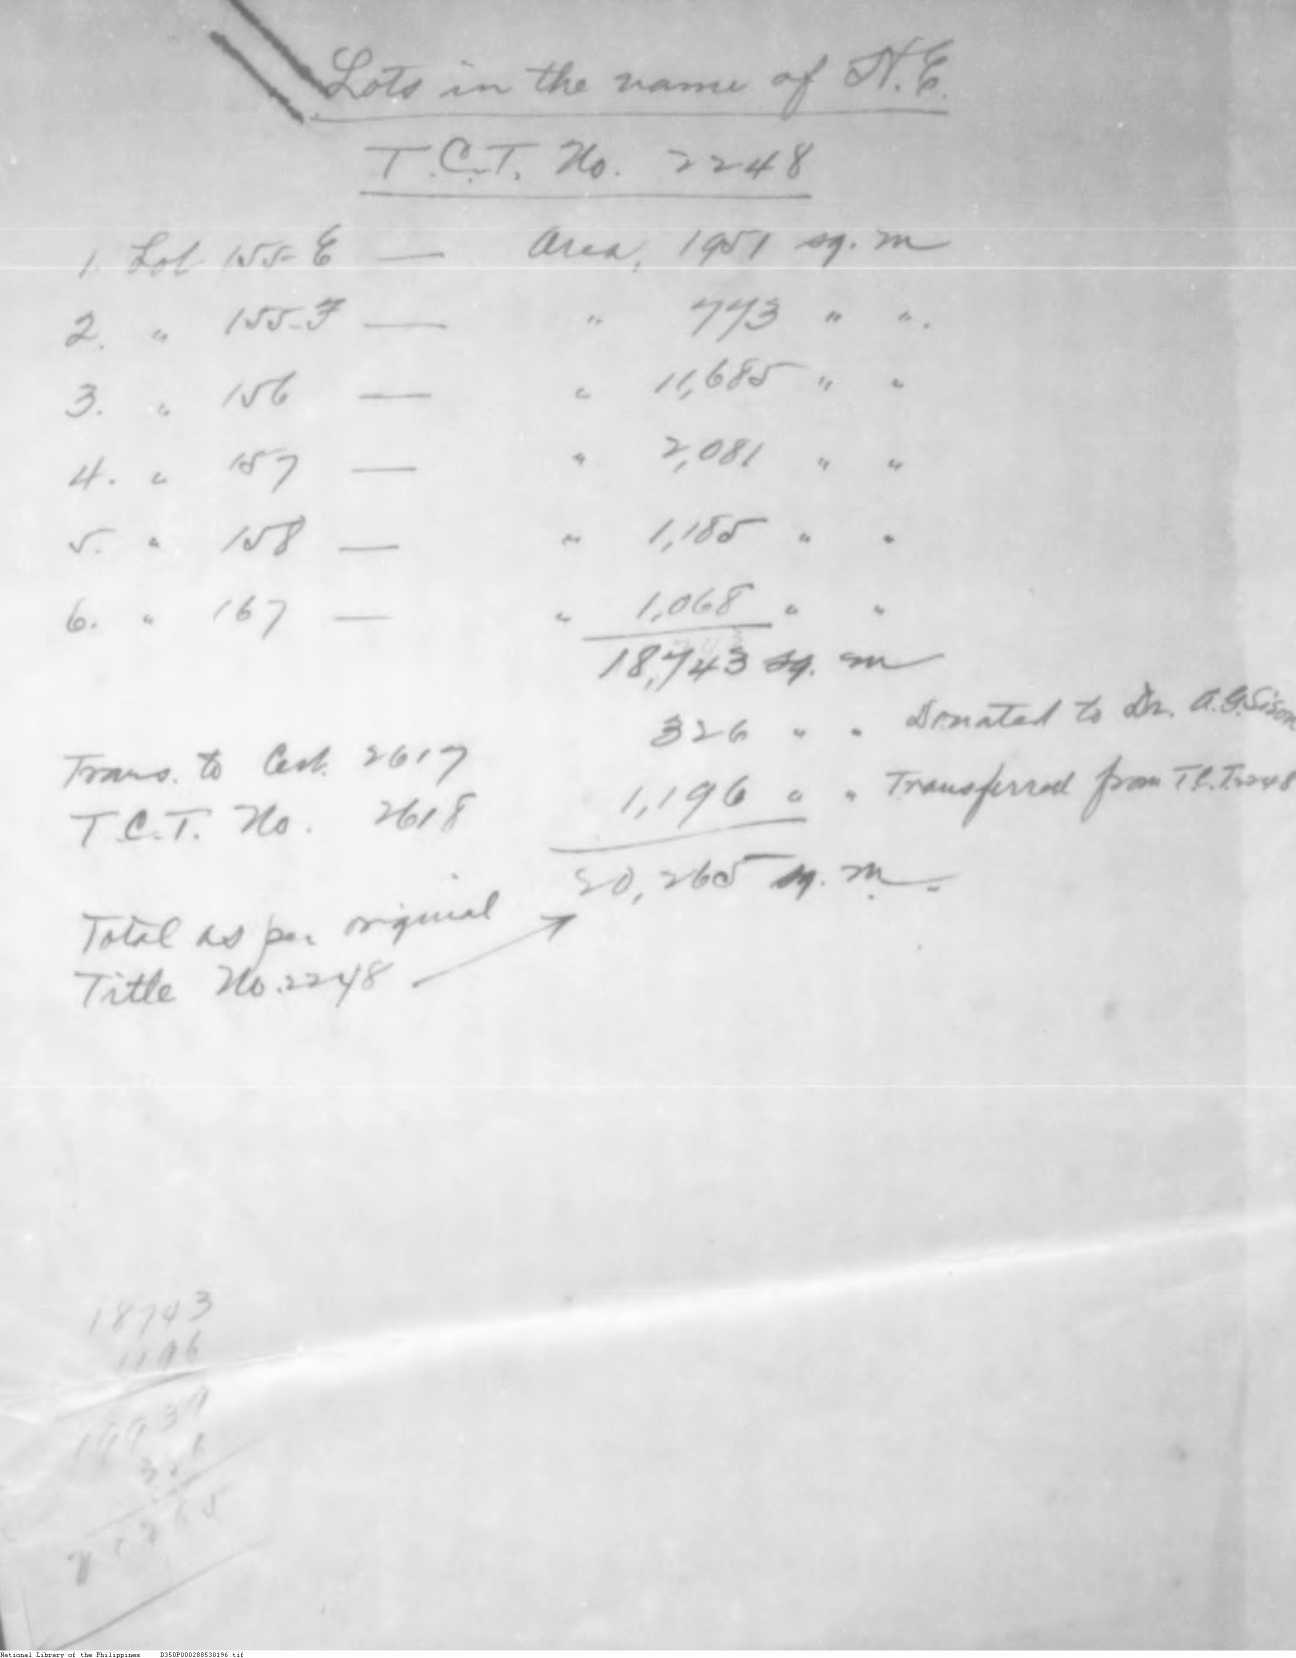 Lots in the name of N.E.
T.C.T. No. 2248
1. Lot 155-E — Area, 1951 sq. m
2. " 155-F — " 773 " ".
3. " 156 — " 11,685 " "
4. " 157 — " 2,081 " "
5. " 158 — " 1,185 " "
6. " 167 — " 1,068 " "
18,743 sq. m
326 " " Donated to Dr. A.G. Sison
Trans. to Cert. 2617
1,196 " " Transferred from T.C.T. 2248
T.C.T. No. 2618
20,265 sq. m.
Total as per original
Title No. 2248
18743
1196
19939
326
20265
National Library of the Philippines D350P000288530196.tif